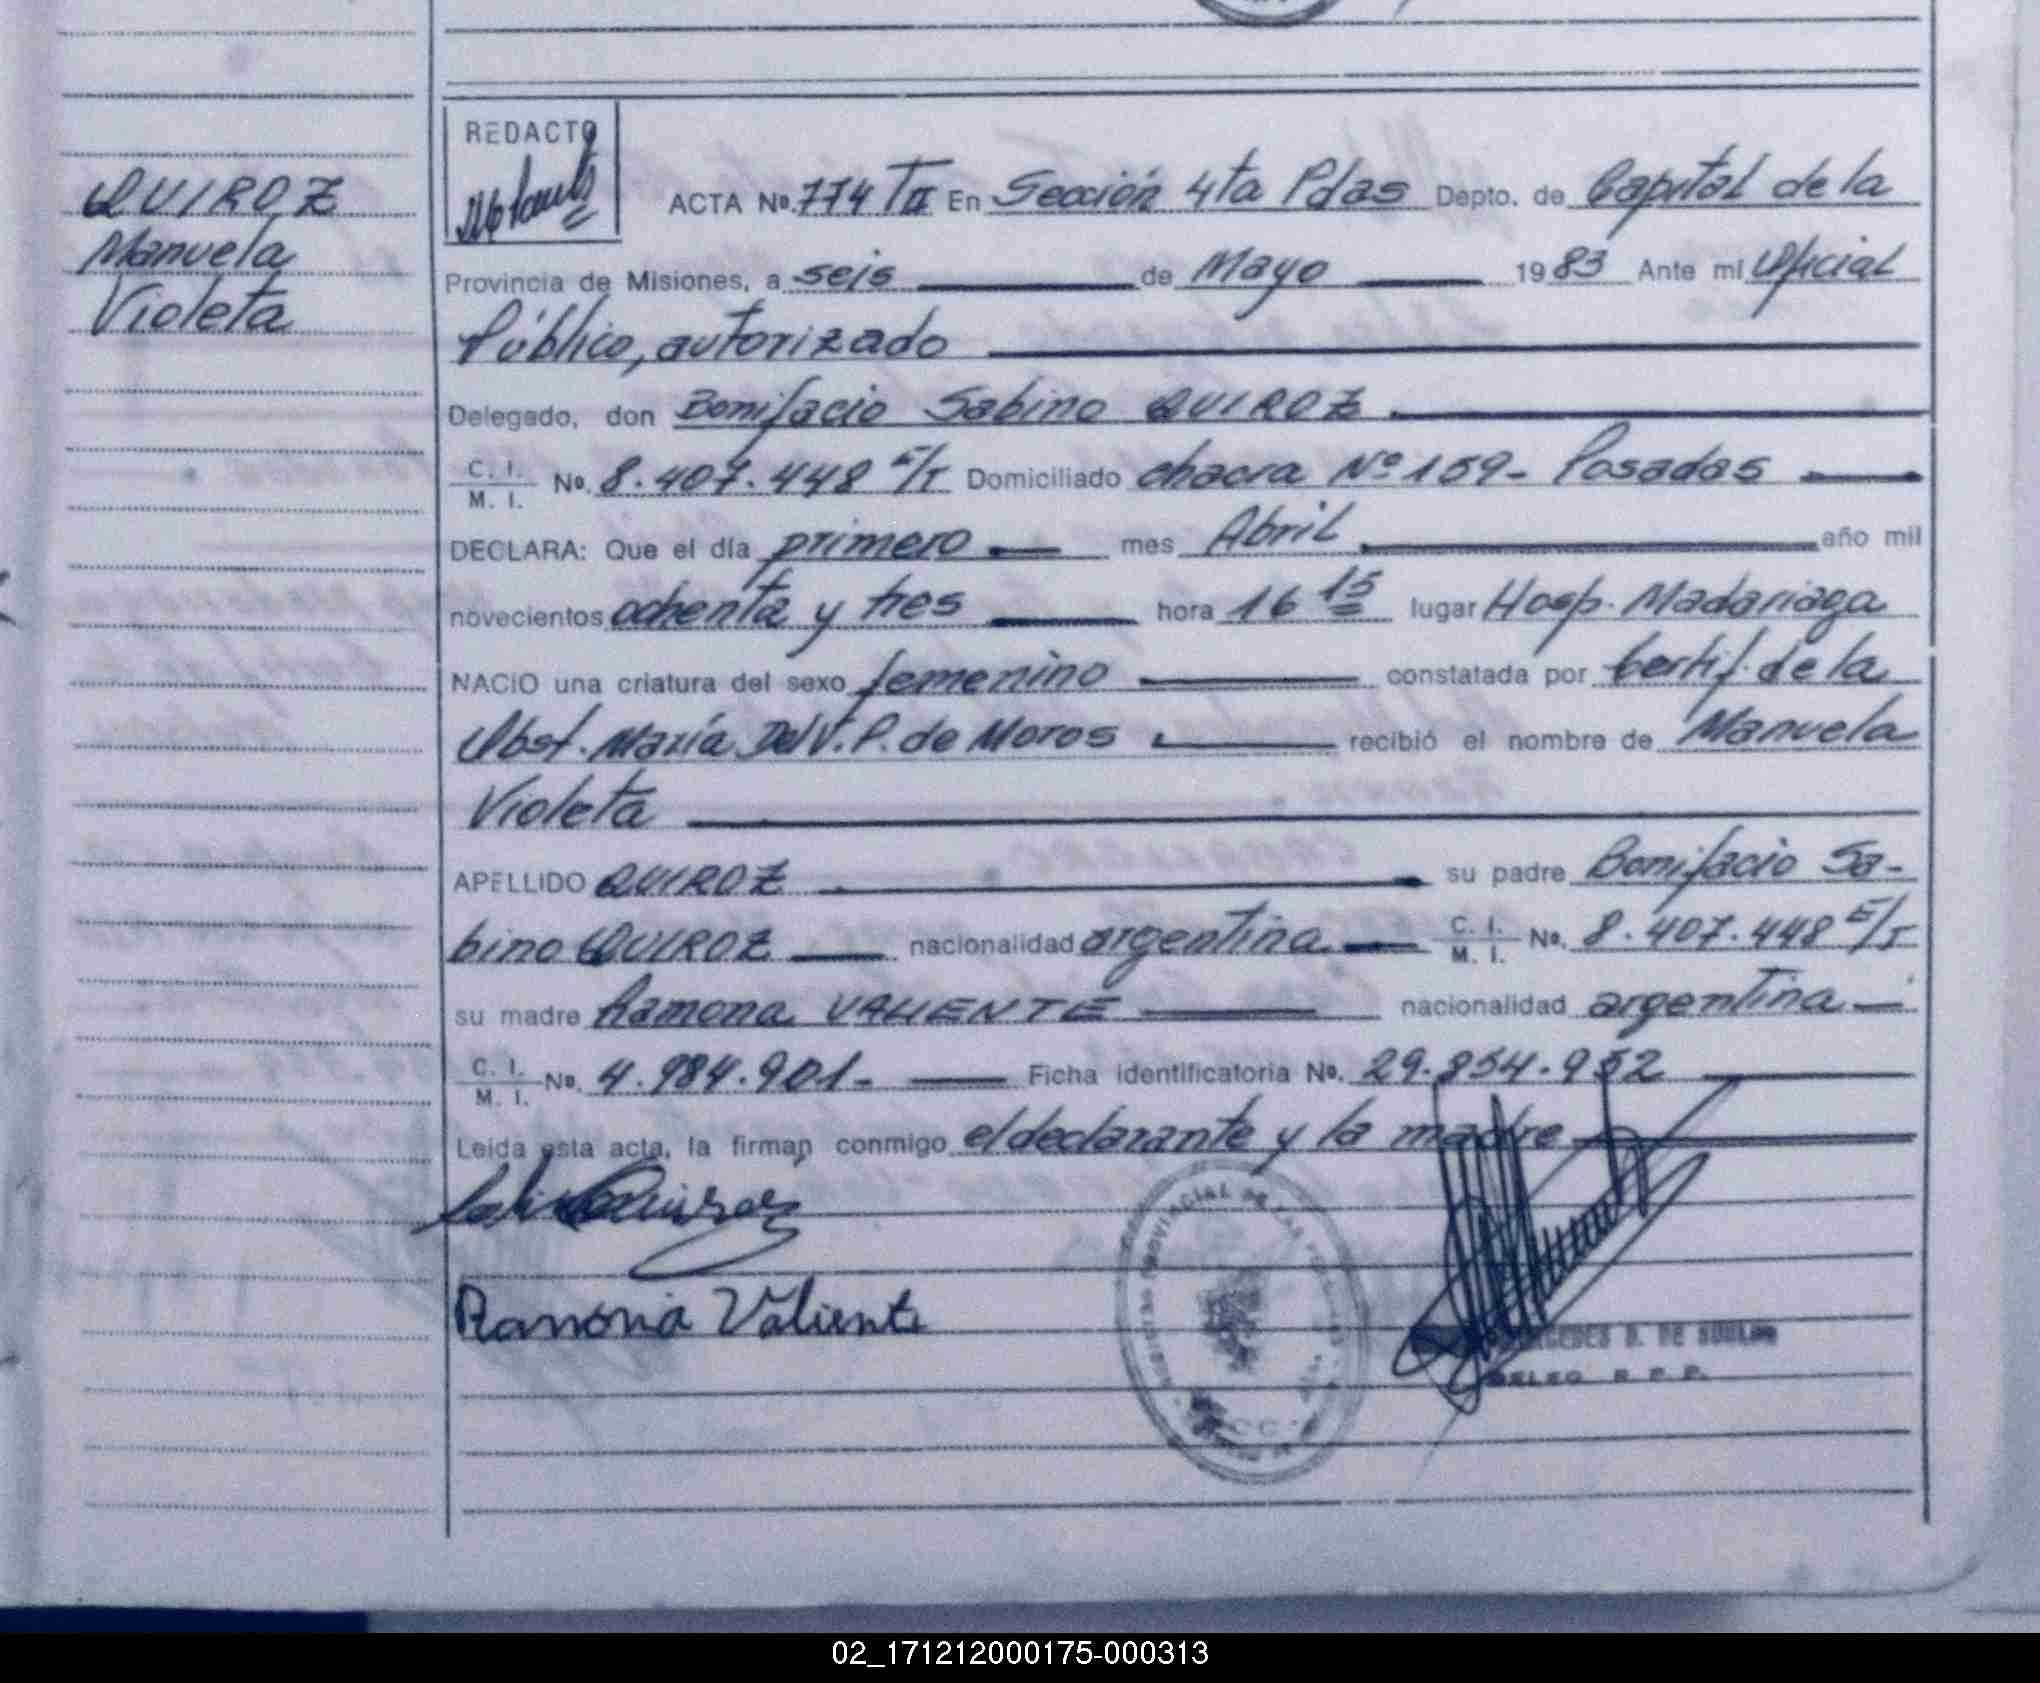 QUIROZ
Manuela
Violeta
REDACTO
ACTA Nº. 774 TII En Sección 4ta Pdas Depto. de Capital de la
Provincia de Misiones, a seis de Mayo 1983 Ante mi Oficial
Público, autorizado
Delegado, don Bonifacio Sabino QUIROZ
C. I. M. I. Nº. 8.407.448 E/T Domiciliado chacra Nº 159- Posadas
DECLARA: Que el día primero mes Abril año mil
novecientos ochenta y tres hora 16 15 lugar Hosp. Madariaga
NACIO una criatura del sexo femenino constatada por Certif. de la
Obst. María Del V. P. de Moros recibió el nombre de Manuela
Violeta
APELLIDO QUIROZ su padre Bonifacio Sa-
bino QUIROZ nacionalidad argentina C. I. M. I. Nº. 8.407.448 E/T
su madre Ramona VALIENTE nacionalidad argentina
C. I. M. I. Nº. 4.984.901- Ficha identificatoria Nº. 29.834.952
Leida esta acta, la firman conmigo el declarante y la madre
Quiroz
Ramona Valiente
DELEG R. P. P.
02_171212000175-000313